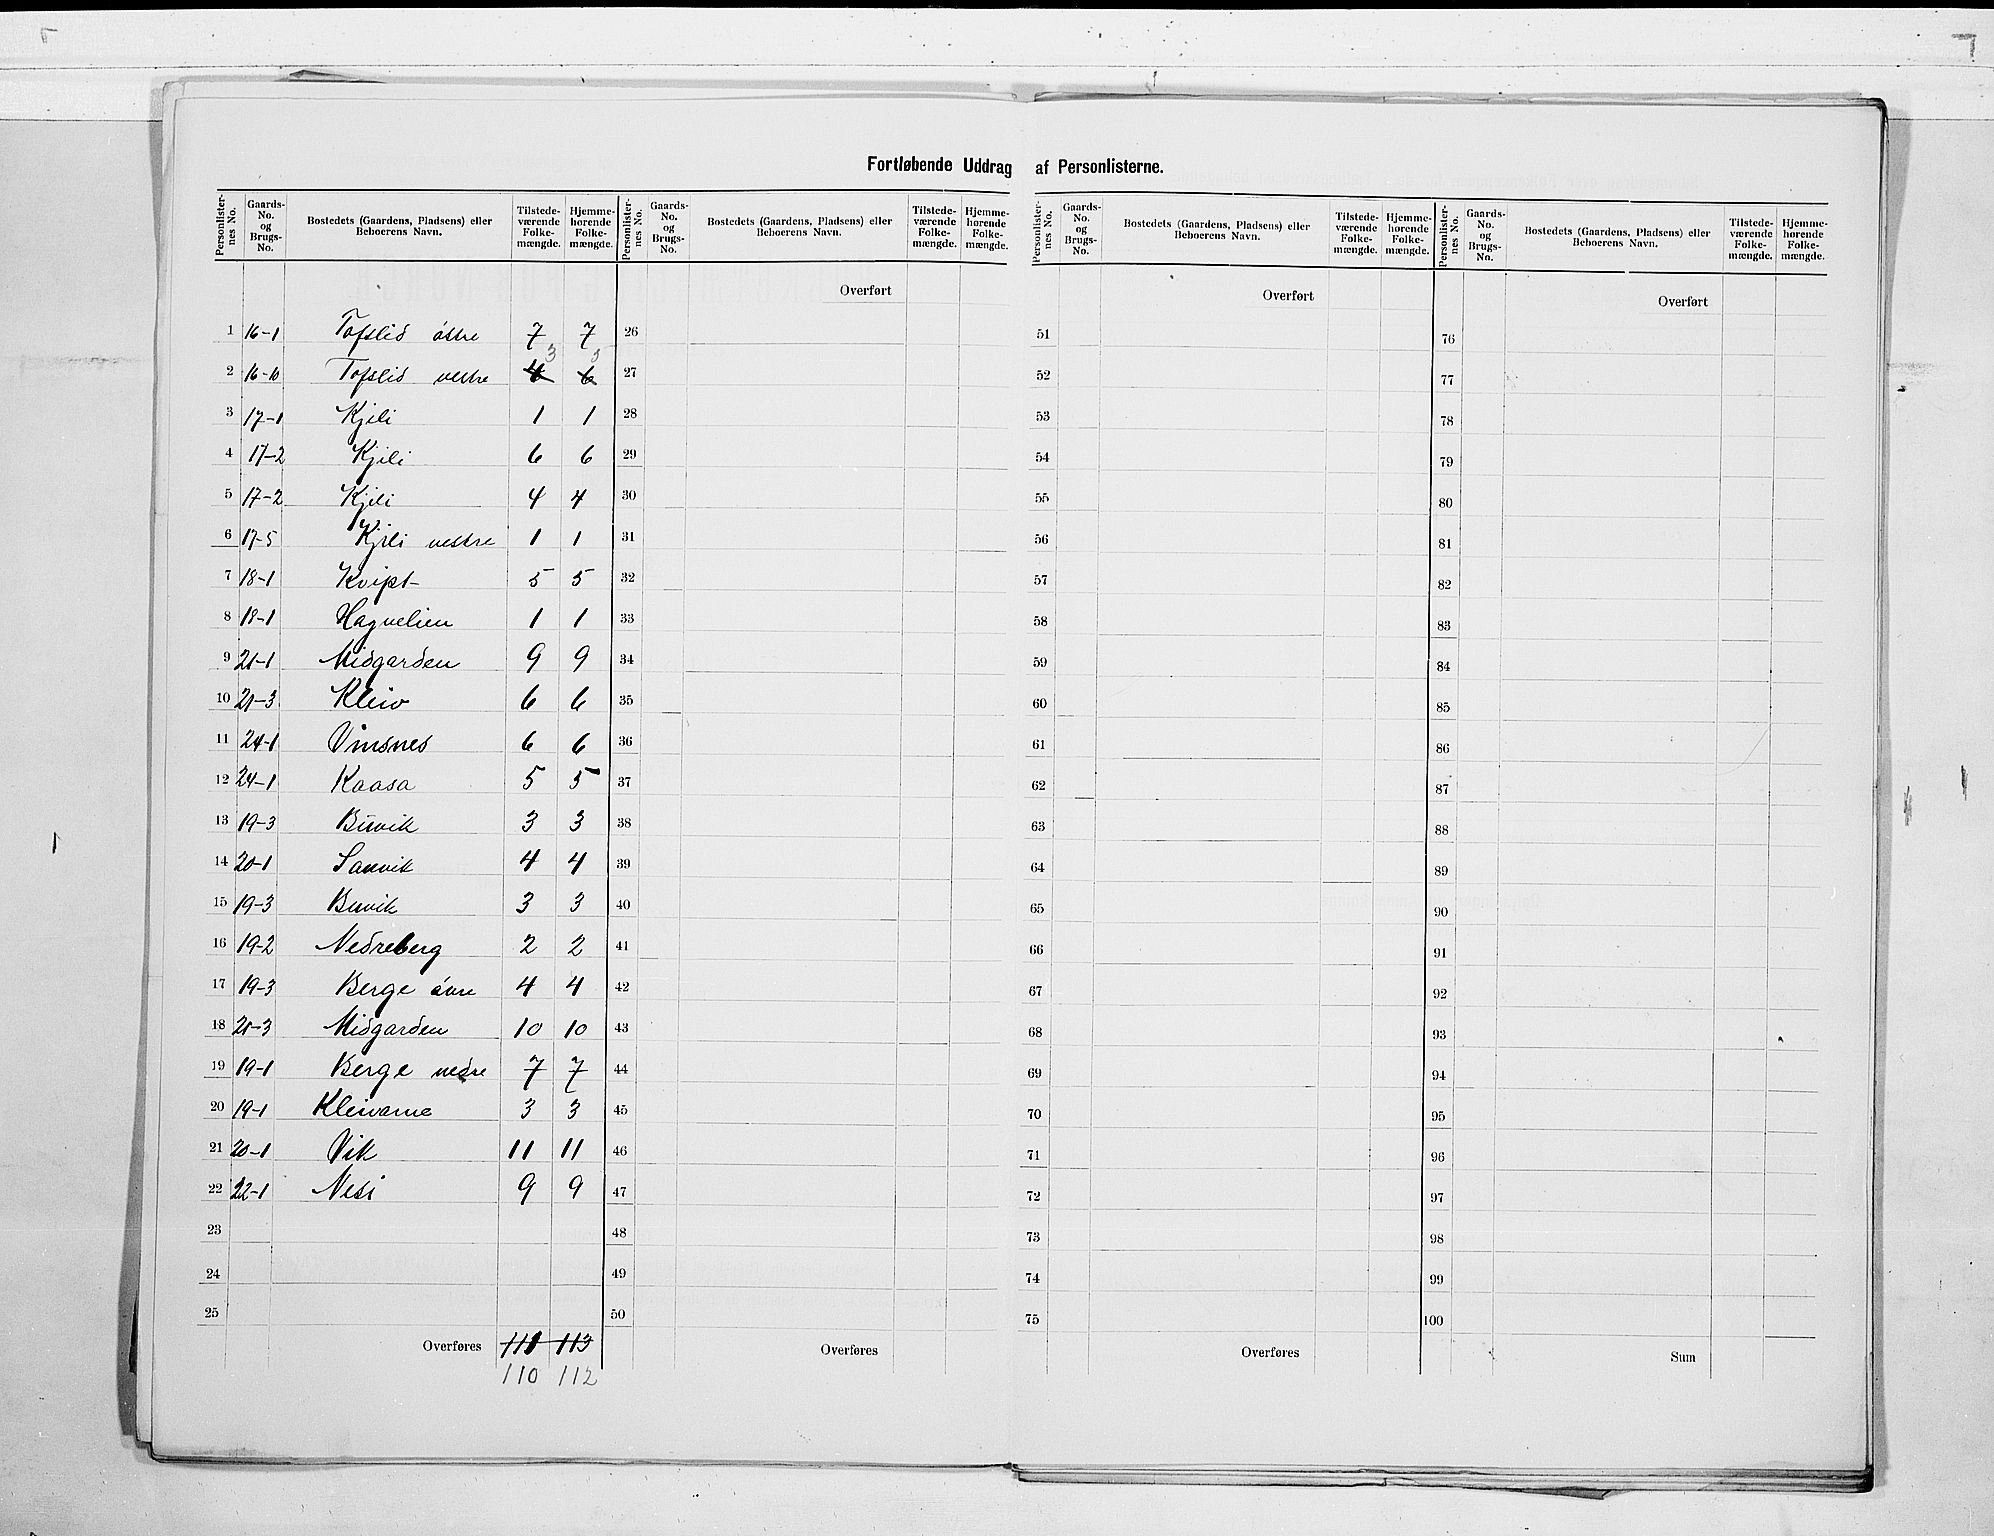 Fortløbende Uddrag af Personlisterne.
Personlister-nes No. Gaards-No. og Brugs-No. Bostedets (Gaardens, Pladsens) eller Beboerens Navn. Tilstede-værende Folke-mængde. Hjemme-hørende Folke-mængde.
1 16-1 Tofslid østre 7 7
2 16-10 Tofslid vestre 4 6 3 5
3 17-1 Kjili 1 1
4 17-2 Kjili 6 6
5 17-2 Kjili 4 4
6 17-5 Kjili vestre 1 1
7 18-1 Kvipt 5 5
8 18-1 Hagvelien 1 1
9 21-1 Midgarden 9 9
10 21-3 Kleiv 6 6
11 24-1 Vinsnes 6 6
12 24-1 Kaasa 5 5
13 19-3 Buvik 3 3
14 20-1 Sanvik 4 4
15 19-3 Buvik 3 3
16 19-2 Nedreberg 2 2
17 19-3 Berge øvre 4 4
18 21-3 Midgarden 10 10
19 19-1 Berge nedre 7 7
20 19-1 Kleivarne 3 3
21 20-1 Vik 11 11
22 22-1 Nesi 9 9
23
24
25
Overføres 111 113
110 112
Personlister-nes No. Gaards-No. og Brugs-No. Bostedets (Gaardens, Pladsens) eller Beboerens Navn. Tilstede-værende Folke-mængde. Hjemme-hørende Folke-mængde.
Overført
26
27
28
29
30
31
32
33
34
35
36
37
38
39
40
41
42
43
44
45
46
47
48
49
50
Overføres
Personlister-nes No. Gaards-No. og Brugs-No. Bostedets (Gaardens, Pladsens) eller Beboerens Navn. Tilstede-værende Folke-mængde. Hjemme-hørende Folke-mængde.
Overført
51
52
53
54
55
56
57
58
59
60
61
62
63
64
65
66
67
68
69
70
71
72
73
74
75
Overføres
Personlister-nes No. Gaards-No. og Brugs-No. Bostedets (Gaardens, Pladsens) eller Beboerens Navn. Tilstede-værende Folke-mængde. Hjemme-hørende Folke-mængde.
Overført
76
77
78
79
80
81
82
83
84
85
86
87
88
89
90
91
92
93
94
95
96
97
98
99
100
Sum